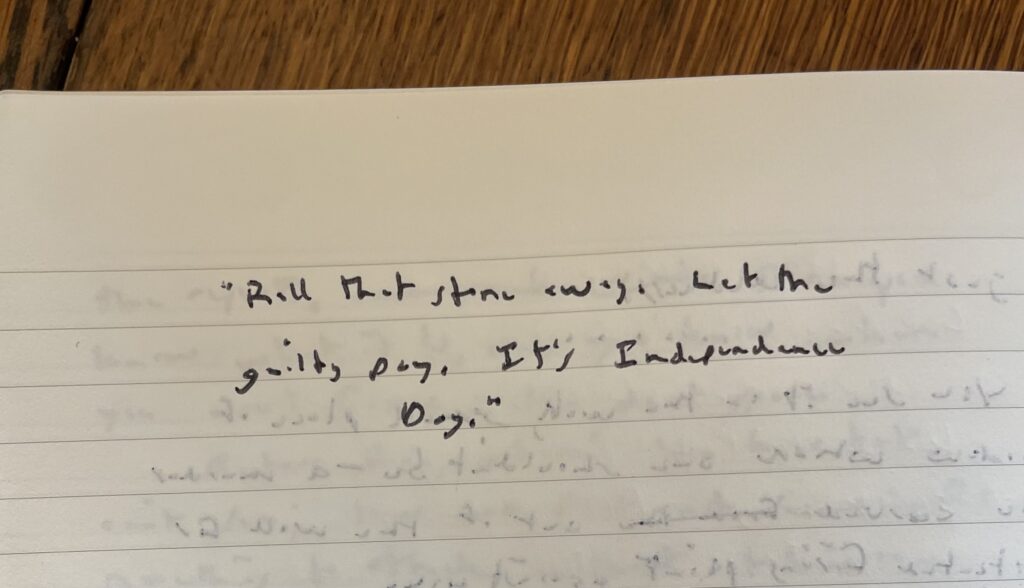 "Roll that stone away. Let the
guilty pay. It's Independence
Day."